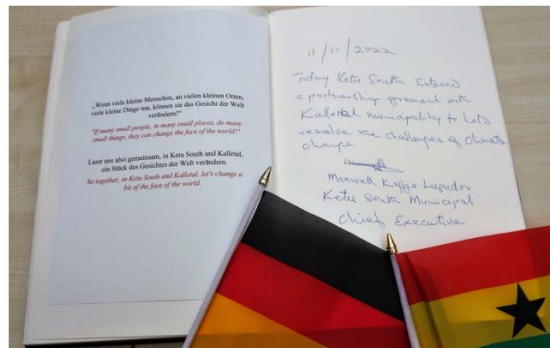 „Wenn viele kleine Menschen, an vielen kleinen Orten,
viele kleine Dinge tun, können sie das Gesicht der Welt
verändern!"
"If many small people, in many small places, do many
small things, they can change the face of the world!"
Lasst uns also gemeinsam, in Ketu South und Kalletal,
ein Stück des Gesichtes der Welt verändern.
So together, in Ketu South and Kalletal, let's change a
bit of the face of the world.
11/11/2022
Today Ketu South Entered
a partnership with
Kalletal municipality to
resolve the challenges of climate
change
Maxwell
Ketu South Municipal
Chief Executive